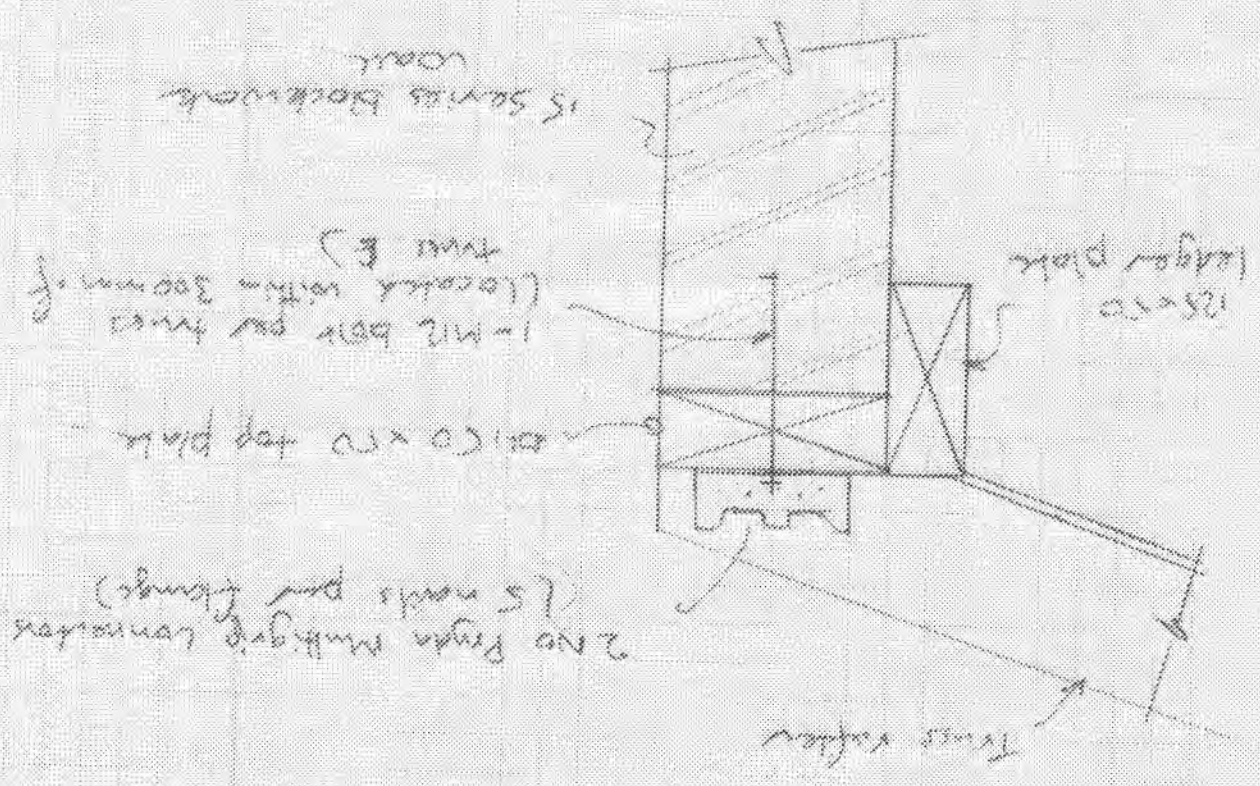 Truss rafter
2 NO Pryda Multigrip connectors
(5 nails per flange)
x 50 top plate
1-M12 bolt per truss
(located within 300mm of
truss)
125 x 50
ledger plate
15 series blockwork
wall